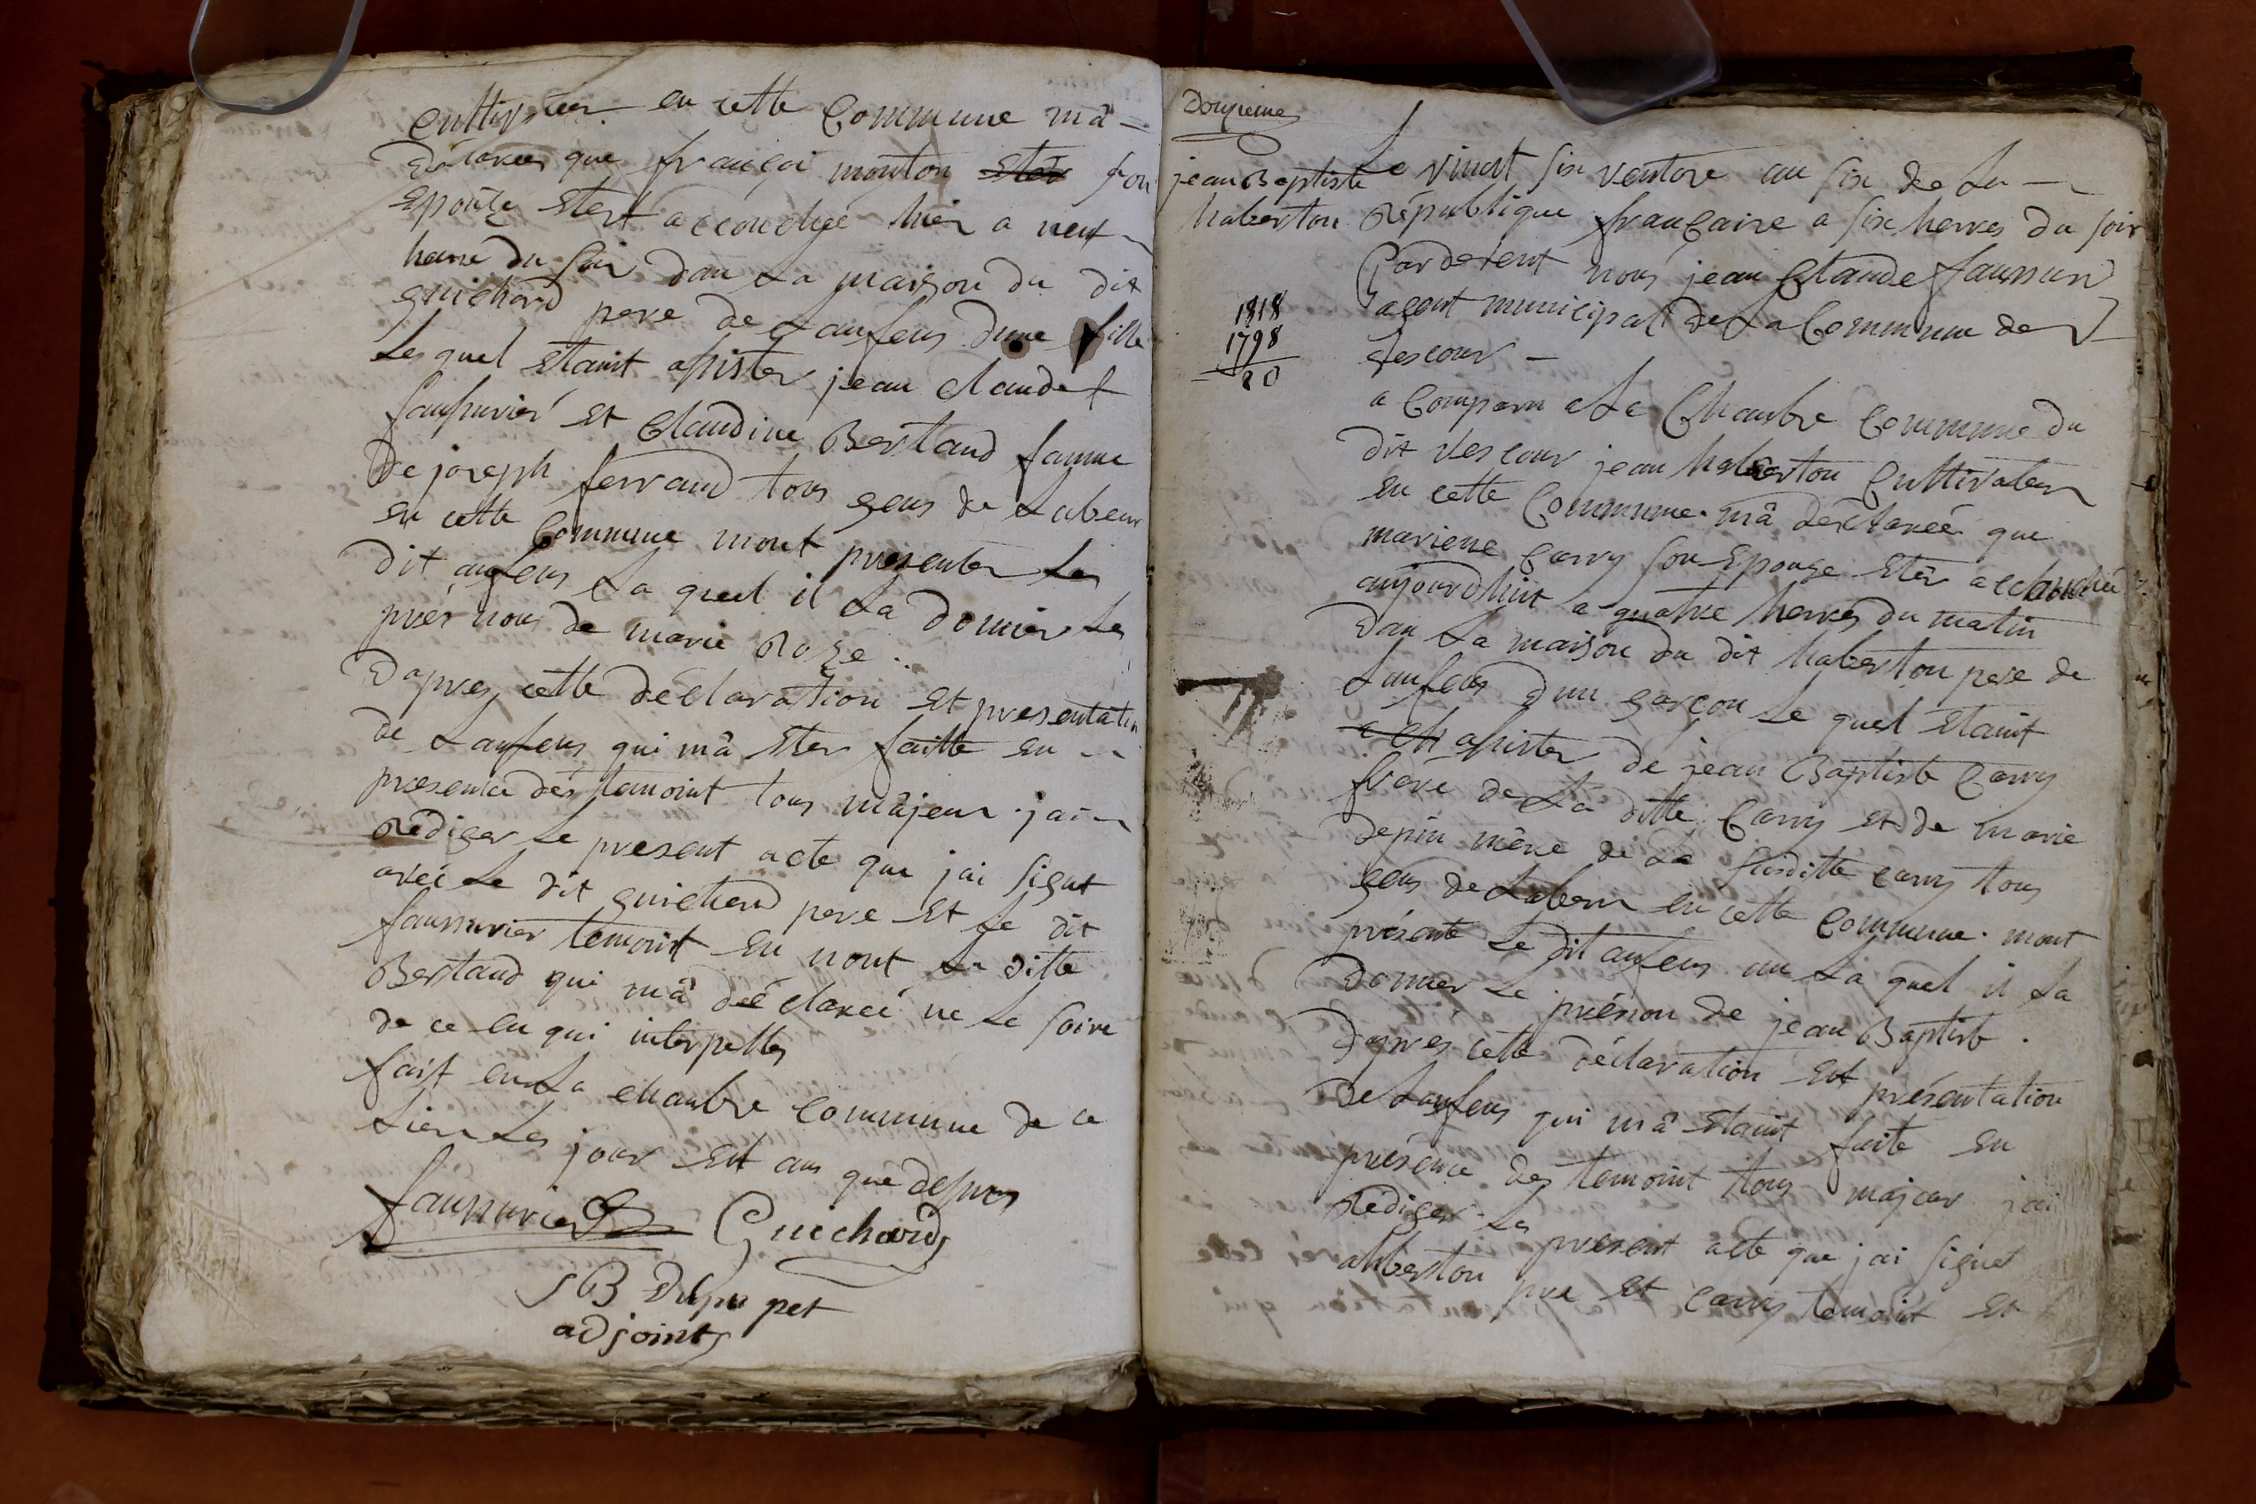 Cultivateur en cette Commune mâ
déclarées que françoi mouton eter son
Epouze Etert accouchée hier a neuf
heure du soir dan La maison du dit
guichard pere de Lanfens dune fille
Les quel étaint assister jean claude
faussurier et Claudine Bertaud famme
De joseph ferraud tous gens de Labeur
en cette Commune mont presenter Les
dit anfens La quel il La donner Les
prés nous de marie Roze
Dapres cette déclaration et presentation
de Lanfens qui mâ eter faitte en
presence dés temoint tous mâjeur jai
Rédiger Le present acte que jai signet
avéc Le dit guichard pere et Le dit
faussurier temoint en nont La ditte
Bertaud qui mâ déclareé ne Le savoire
de ce en qui interpellés
fait en La chambre Commune de ce
Lieu Les jour et ans que desus
faussurier Guichard
adjoint
Douzieme
jean Baptiste
haberton
1818
1798
20
Le vingt six ventose an six de La
République françaire a six heures du soir
Pardevent nous jean Claude faussurier
agent municipal de La Commune de
Descour
a Comparu a La Chambre Commune du
dit descour jean haberton Cultivateur
en cette Commune mâ declareé que
mariene Carry son Epouze eter accouchée
aujourdhuit a quatre heures du matin
Dan La maison du dit haberton pere de
Lanfens dun garçon Le quel étaint
assister de jean Baptiste Carry
frere de La ditte Carry et de marie
depin mêre de La susditte Carry tous
gens de Labeur en cette Commune mont
présenté Le dit anfens au La quel il La
Donner Le prénon de jean Baptiste
Daprés cette déclaration et présentation
De Lanfens qui mâ étaint faite en
présence des temoint tous majeur jai
Rédiger Les present acte que jai signet
abberton pere et Carry temoint et